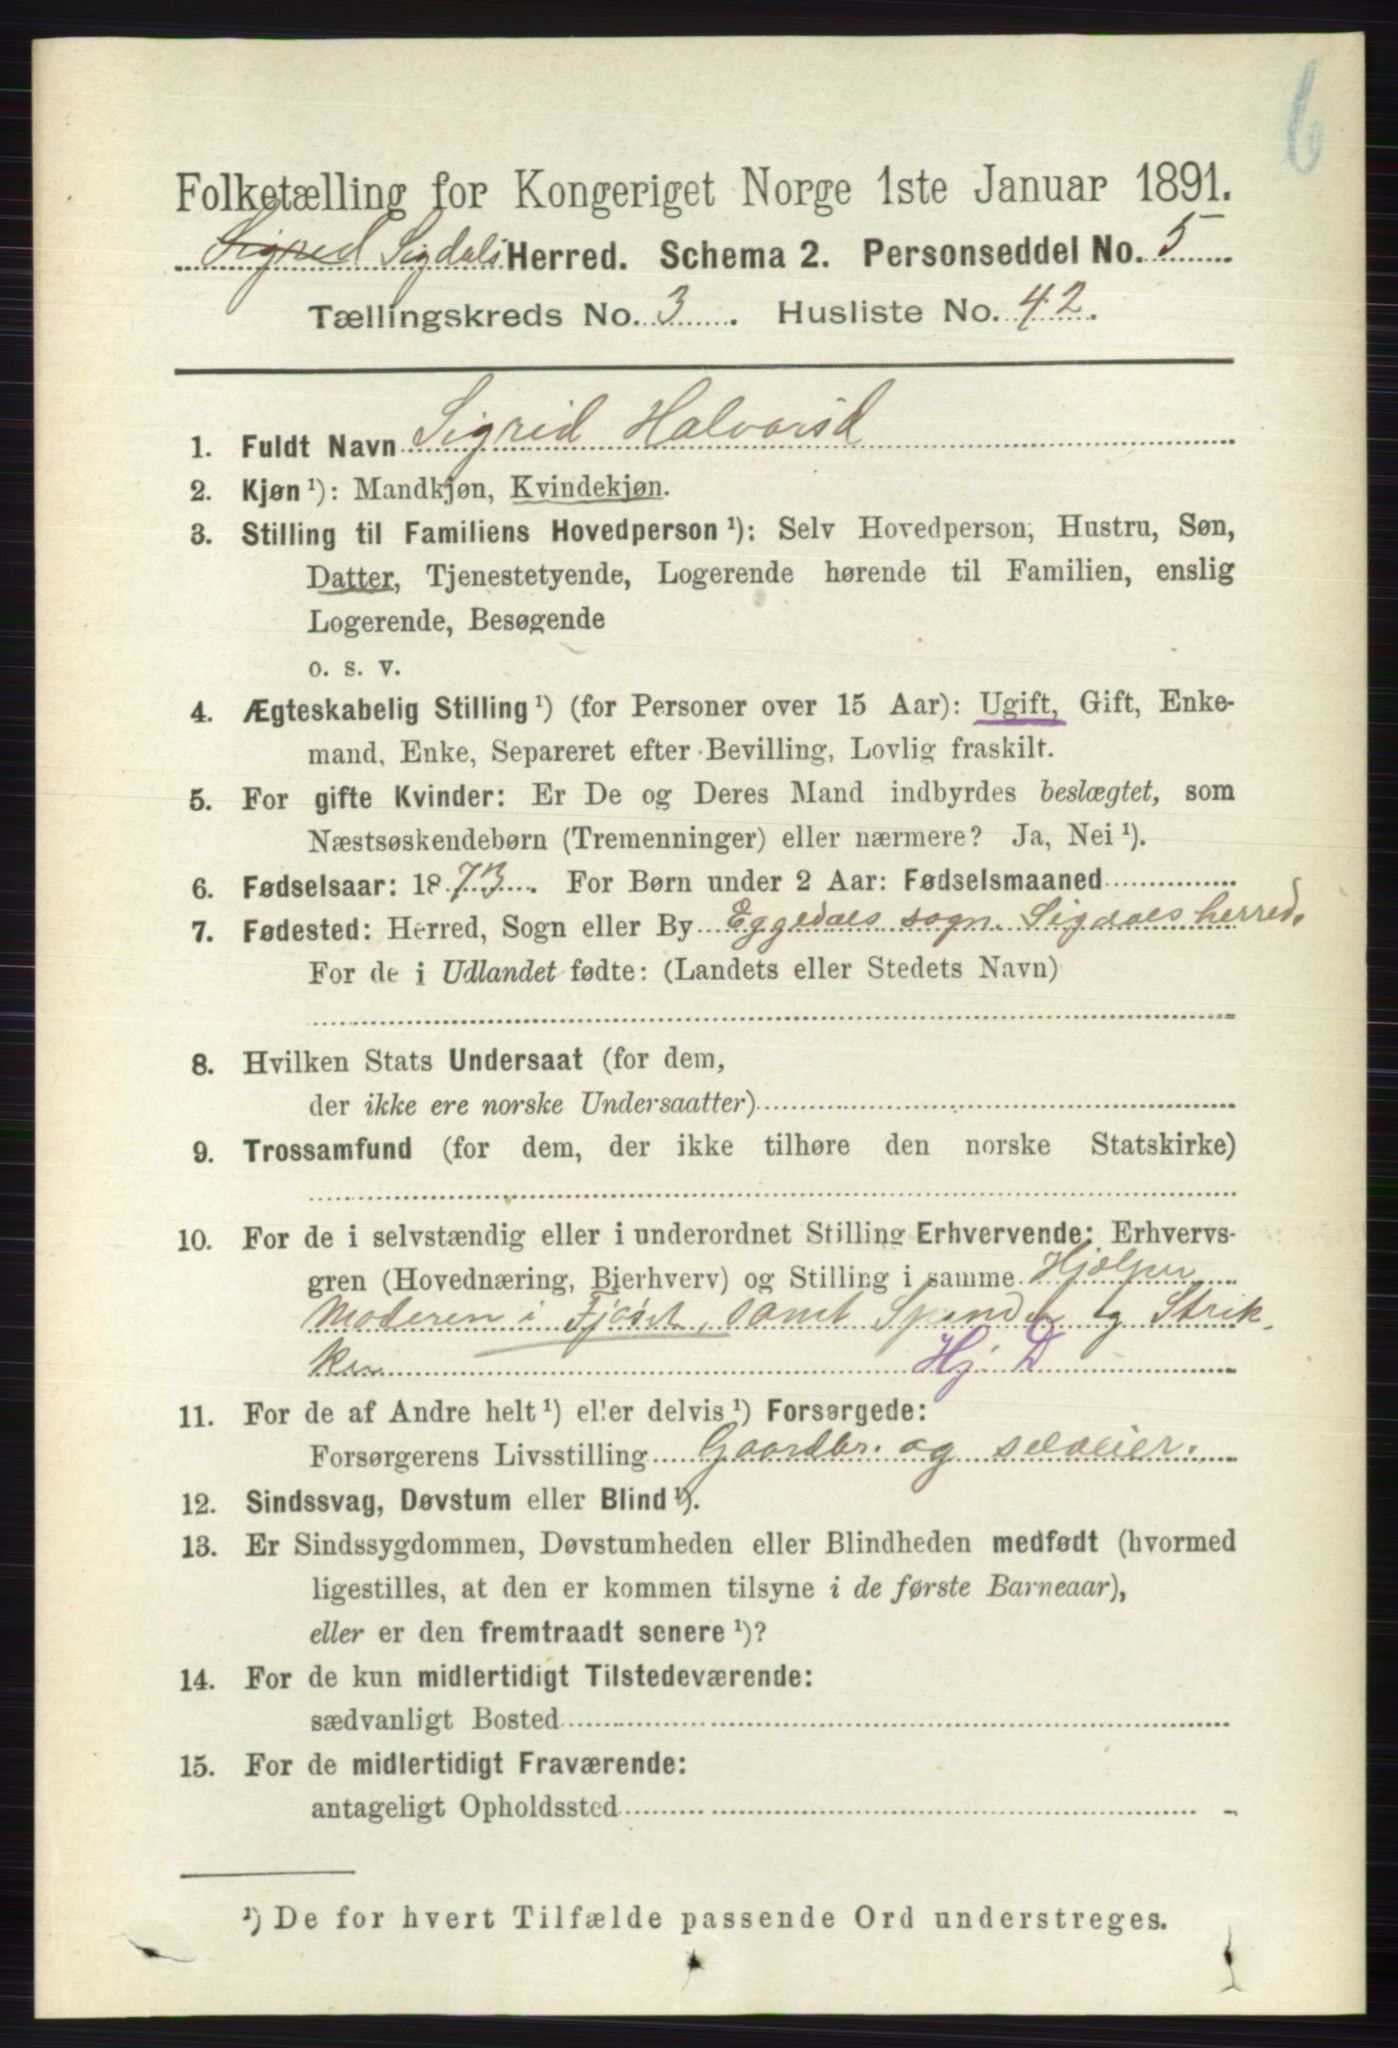 6
Folketælling for Kongeriget Norge 1ste Januar 1891.
Sigred Sigdals Herred. Schema 2. Personseddel No. 5
Tællingskreds No. 3. Husliste No. 42.
1. Fuldt Navn Sigrid Halvorsd
2. Kjøn ¹): Mandkjøn, Kvindekjøn.
3. Stilling til Familiens Hovedperson ¹): Selv Hovedperson, Hustru, Søn,
Datter, Tjenestetyende, Logerende hørende til Familien, enslig
Logerende, Besøgende
o. s. v.
4. Ægteskabelig Stilling ¹) (for Personer over 15 Aar): Ugift, Gift, Enke-
mand, Enke, Separeret efter Bevilling, Lovlig fraskilt.
5. For gifte Kvinder: Er De og Deres Mand indbyrdes beslægtet, som
Næstsøskendebørn (Tremenninger) eller nærmere? Ja, Nei ¹).
6. Fødselsaar: 1873. For Børn under 2 Aar: Fødselsmaaned
7. Fødested: Herred, Sogn eller By Eggedals sogn. Sigdals herred.
For de i Udlandet fødte: (Landets eller Stedets Navn)
8. Hvilken Stats Undersaat (for dem,
der ikke ere norske Undersaatter)
9. Trossamfund (for dem, der ikke tilhøre den norske Statskirke)
10. For de i selvstændig eller i underordnet Stilling Erhvervende: Erhvervs-
gren (Hovednæring, Bierhverv) og Stilling i samme Hjælper
Moderen i Fjøset, samt Spinder og Strik-
ker Hj. D
11. For de af Andre helt ¹) eller delvis ¹) Forsørgede:
Forsørgerens Livsstilling Gaardbr. og selveier.
12. Sindssvag, Døvstum eller Blind ¹).
13. Er Sindssygdommen, Døvstumheden eller Blindheden medfødt (hvormed
ligestilles, at den er kommen tilsyne i de første Barneaar),
eller er den fremtraadt senere ¹)?
14. For de kun midlertidigt Tilstedeværende:
sædvanligt Bosted
15. For de midlertidigt Fraværende:
antageligt Opholdssted
¹) De for hvert Tilfælde passende Ord understreges.